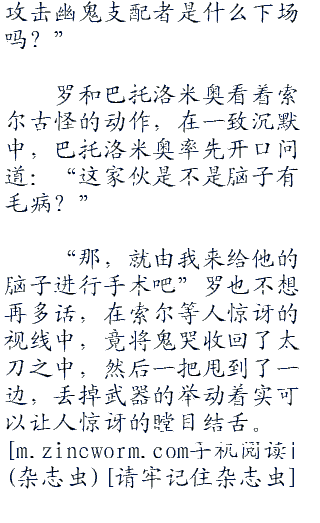 攻击幽鬼支配者是什么下场
吗？”
罗和巴托洛米奥看着索
尔古怪的动作，在一致沉默
中，巴托洛米奥率先开口问
道：“这家伙是不是脑子有
毛病？”
“那，就由我来给他的
脑子进行手术吧”罗也不想
再多话，在索尔等人惊讶的
视线中，竟将鬼哭收回了太
刀之中，然后一把甩到了一
边，丢掉武器的举动着实可
以让人惊讶的瞠目结舌。
[m.zincworm.com手机阅读]
(杂志虫)[请牢记住杂志虫]